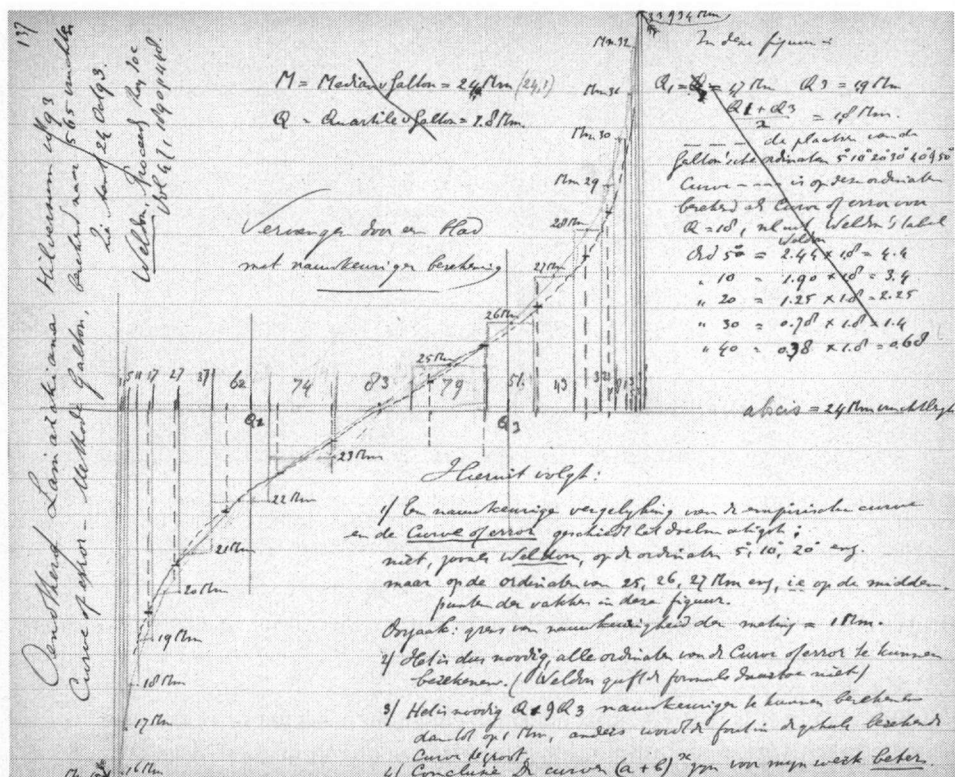 137
Oenothera Lamarckiana Hilversum 1893
Curve of error - Methode Galton, berekend naar 565 vruchten
24 Oct 93.
Weldon, Proceed. Roy Soc
M = Median v Galton = 24 Mm (24,1)
Q = Quartile v Galton = 1.8 Mm.
Vervangen door een blad
met nauwkeuriger berekening
In deze figuur =
Q1 = 17 Mm Q3 = 19 Mm
Q1 + Q3
2
= 1,8 Mm.
de plaatsen van de
Galton'sche ordinaten 5° 10° 20° 30° 40° 50°
Curve ---- is op deze ordinaten
berekend als Curve of error voor
Q = 1.8, nl uit Weldon's tabel
Weldon
Ord 5° = 2.44 x 1.8 = 4.4
" 10 = 1.90 x 1.8 = 3.4
" 20 = 1.25 x 1.8 = 2.25
" 30 = 0.78 x 1.8 = 1.4
" 40 = 0.38 x 1.8 = 0.68
Mm 32
Mm 31
Mm 30
Mm 29
28 Mm
27 Mm
26 Mm
25 Mm
17 27 37 62 74 83 79 51 43 32
Q1
Q3
abscis = 24 Mm vruchtlengte
23 Mm
22 Mm
21 Mm
20 Mm
19 Mm
18 Mm
17 Mm
16 Mm
Hieruit volgt:
1/ Een nauwkeurige vergelyking van de empirische curve
en de Curve of error geschiedt het doelmatigst;
niet, zooals Weldon, op de ordinaten 5°, 10°, 20° enz.
maar op de ordinaten van 25, 26, 27 Mm enz, i.e. op de midden-
punten der vakken in deze figuur.
Oorzaak: grens van nauwkeurigheid der meting = 1 Mm.
2/ Het is dus noodig, alle ordinaten van de Curve of error te kunnen
berekenen. (Weldon geeft de formule daartoe niet)
3/ Het is noodig Q1 & Q3 nauwkeuriger te kunnen berekenen
dan tot op 1 Mm, anders wordt de fout in de geheele berekende
Curve te groot.
4/ Conclusie De curven (a + b)ˣ zyn voor myn werk beter.